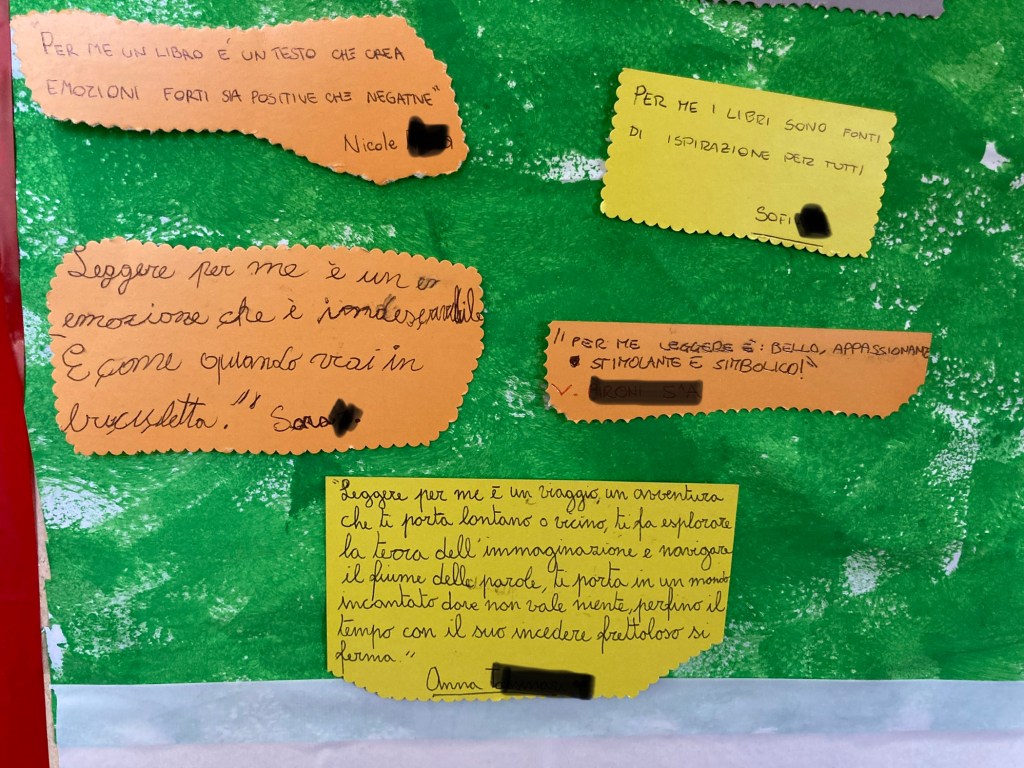 PER ME UN LIBRO É UN TESTO CHE CREA
EMOZIONI FORTI SIA POSITIVE CHE NEGATIVE"
Nicole
PER ME I LIBRI SONO FONTI
DI ISPIRAZIONE PER TUTTI
SOFI
Leggere per me è un
emozione che è
E come quando vai in
bicicletta." Sara
"PER ME LEGGERE É: BELLO, APPASSIONANTE
STIMOLANTE E SIMBOLICO!"
"Leggere per me è un viaggio, un avventura
che ti porta lontano o vicino, ti fa esplorare
la terra dell'immaginazione e navigare
il fiume delle parole, ti porta in un mondo
incantato dove non vale niente, perfino il
tempo con il suo incedere frettoloso si
ferma."
Anna